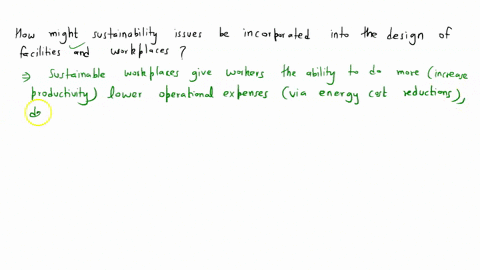 How might sustainability issues be incorporated into the design of
facilities and workplaces ?
⇒ Sustainable workplaces give workers the ability to do more (increase
productivity) lower operational expenses (via energy cost reductions),
do